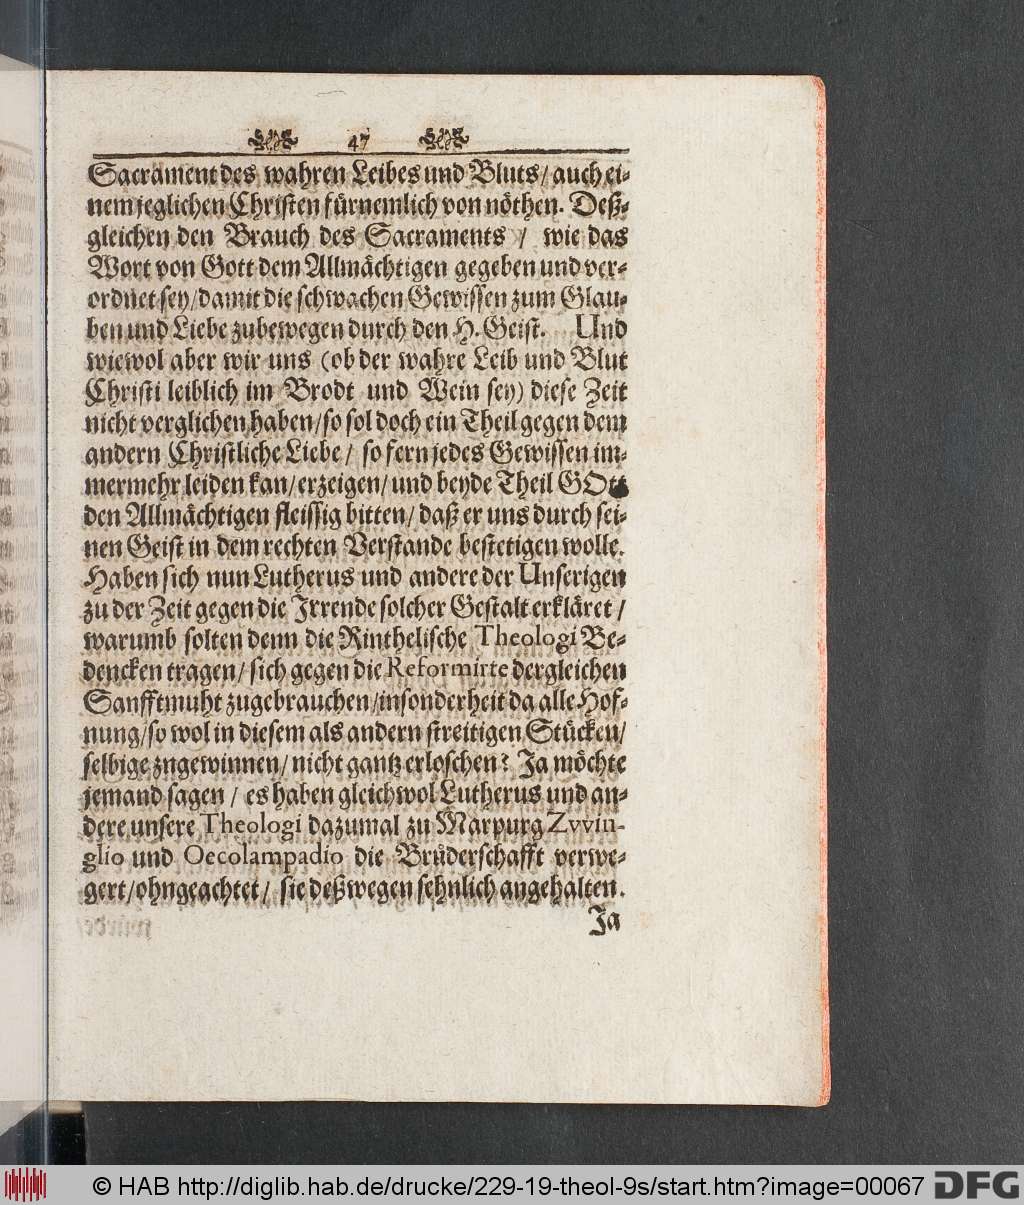 47
Sacrament des wahren Leibes und Bluts / auch ei-
nem jeglichen Christen fürnemlich von nöthen. Deß-
gleichen den Brauch des Sacraments / wie das
Wort von Gott dem Allmächtigen gegeben und ver-
ordnet sey / damit die schwachen Gewissen zum Glau-
ben und Liebe zubewegen durch den H. Geist. Und
wiewol aber wir uns (ob der wahre Leib und Blut
Christi leiblich im Brodt und Wein sey) diese Zeit
nicht verglichen haben / so sol doch ein Theil gegen dem
andern Christliche Liebe / so fern jedes Gewissen im-
mermehr leiden kan / erzeigen / und beyde Theil GOtt
den Allmächtigen fleissig bitten / daß er uns durch sei-
nen Geist in dem rechten Verstande bestetigen wolle.
Haben sich nun Lutherus und andere der Unserigen
zu der Zeit gegen die Irrende solcher Gestalt erkläret /
warumb solten denn die Rinthelische Theologi Be-
dencken tragen / sich gegen die Reformirte dergleichen
Sanfftmuht zugebrauchen / insonderheit da alle Hof-
nung / so wol in diesem als andern streitigen Stücken /
selbige zngewinnen / nicht gantz erloschen? Ja möchte
jemand sagen / es haben gleichwol Lutherus und an-
dere unsere Theologi dazumal zu Marpurg Zvvin-
glio und Oecolampadio die Brüderschafft verwe-
gert / ohngeachtet / sie deßwegen sehnlich angehalten.
Ja
© HAB http://diglib.hab.de/drucke/229-19-theol-9s/start.htm?image=00067
DFG